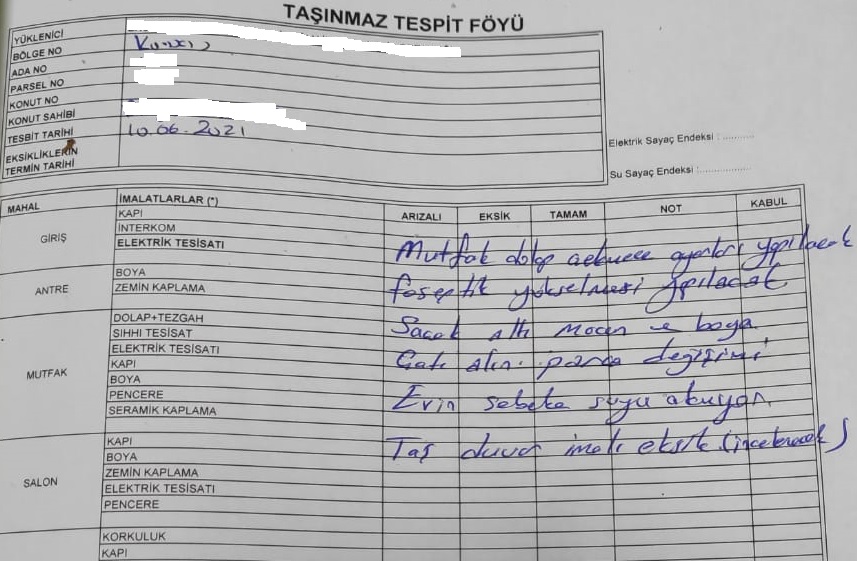 TAŞINMAZ TESPİT FÖYÜ
YÜKLENİCİ
BÖLGE NO
ADA NO
PARSEL NO
KONUT NO
KONUT SAHİBİ
TESBİT TARİHİ 10.06.2021
EKSİKLİKLERİN
TERMİN TARİHİ
Elektrik Sayaç Endeksi : ..........
Su Sayaç Endeksi :................
MAHAL İMALATLARLAR (*) ARIZALI EKSİK TAMAM NOT KABUL
GİRİŞ
KAPI
İNTERKOM
ELEKTRİK TESİSATI
Mutfak dolap çekmece ayarları yapılacak
ANTRE
BOYA
ZEMİN KAPLAMA
foseptik yükselmesi yapılacak
MUTFAK
DOLAP+TEZGAH
SIHHİ TESİSAT
Saçak altı macun ve boya
ELEKTRİK TESİSATI
KAPI
Çatı alın parça değişimi
BOYA
PENCERE
SERAMİK KAPLAMA
Evin şebeke suyu akıyor.
SALON
KAPI
BOYA
Taş duvar imalı eksik (incelenecek)
ZEMİN KAPLAMA
ELEKTRİK TESİSATI
PENCERE
KORKULUK
KAPI